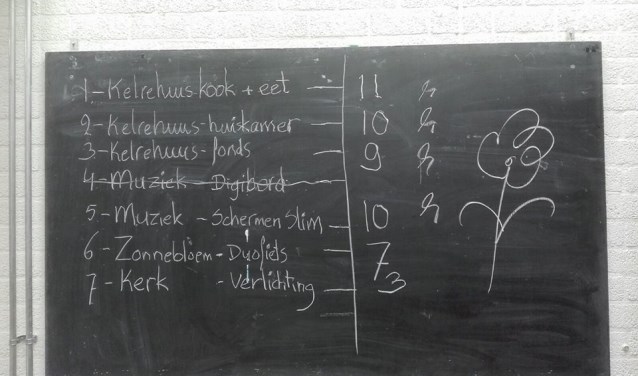 1-Kelrehuus kook + eet — 11
2-Kelrehuus-huiskamer — 10
3-Kelrehuus-fonds — 9
4-Muziek - Digibord
5-Muziek - Schermen Slim — 10
6-Zonnebloem-Duofiets — 7
7-Kerk - Verlichting — 3